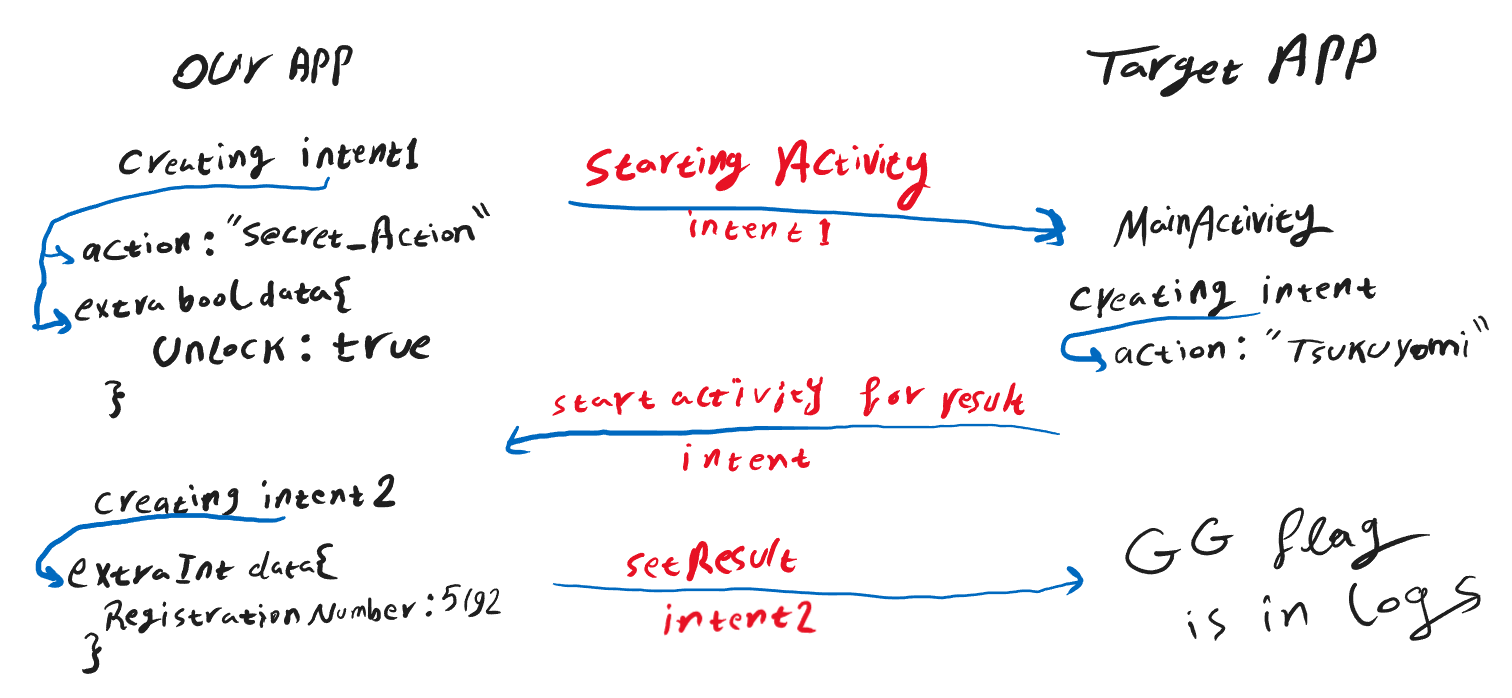 OUr APP
Target APP
creating intent1
action: "Secret_Action"
extra bool data{
UnLock: true
}
Starting Activity
intent1
MainActivity
creating intent
action: "TSUKUyomi"
start activity for result
intent
creating intent2
extraInt data{
Registration Number: 5192
}
setResult
intent2
GG flag
is in Logs